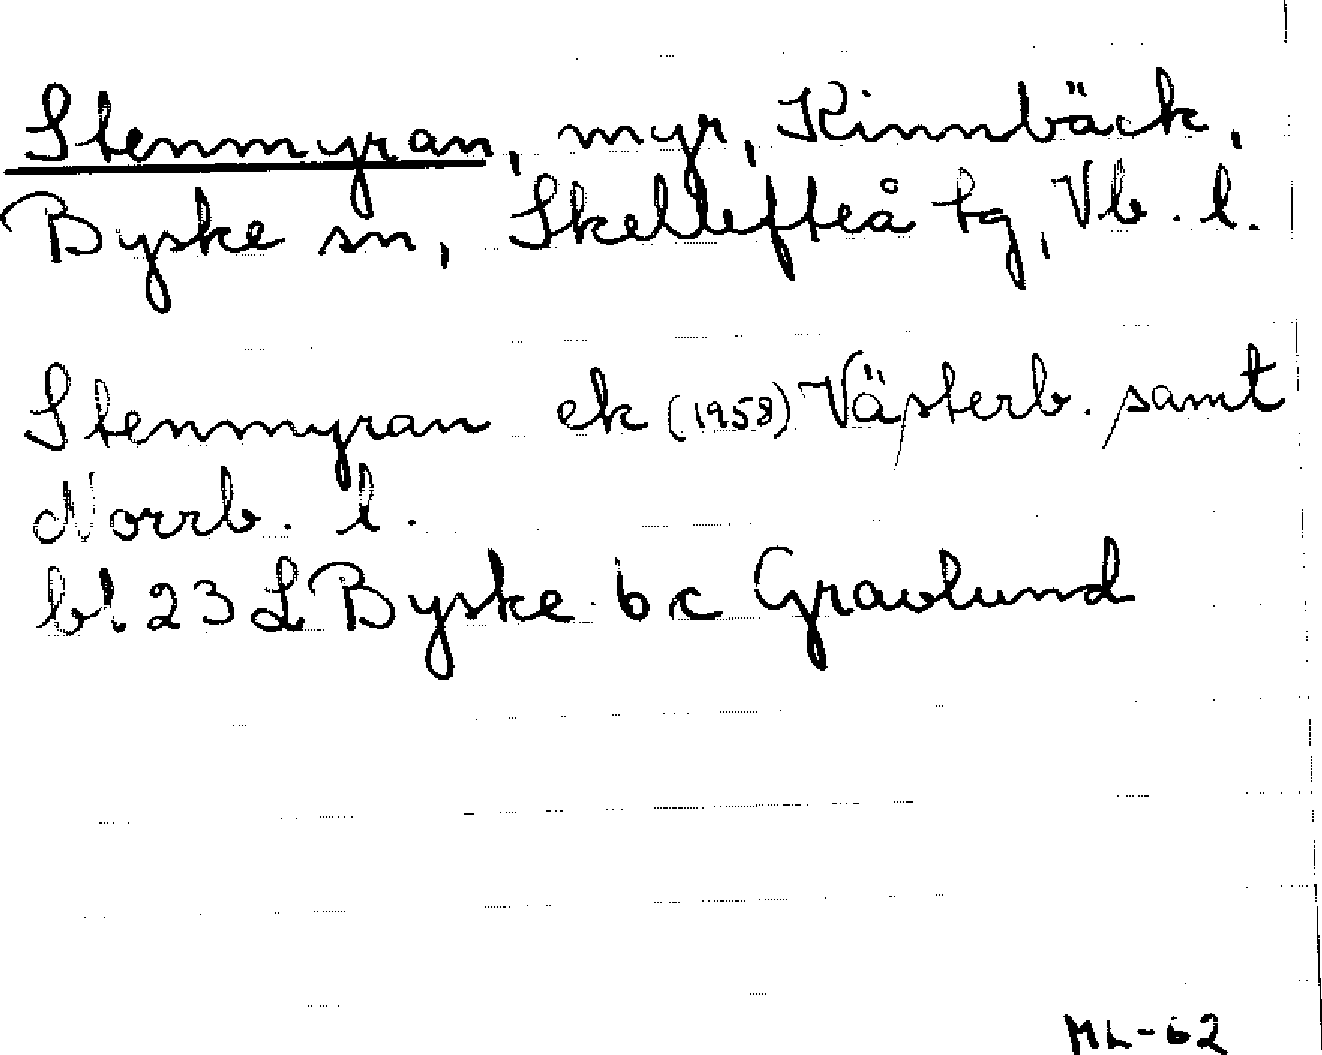 Stenmyran, myr, Kinnbäck,
Byske sn, Skellefteå tg, Vb. l.
Stenmyran ek (1958) Västerb. samt
Norrb. l.
bl. 23 L Byske 6 c Gravlund
ML-62